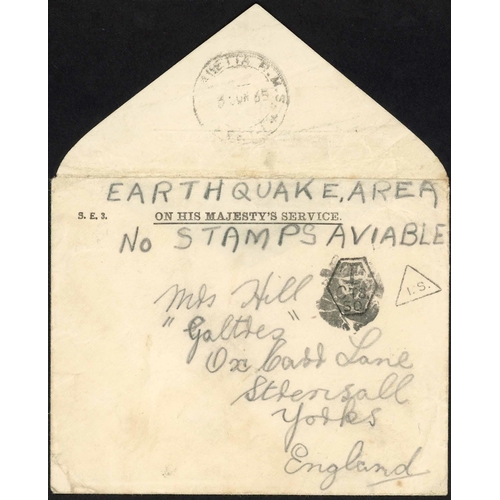 EARTHQUAKE, AREA
S. E. 3. ON HIS MAJESTY'S SERVICE.
No STAMPS AVIABLE
T
I. S.
Mrs Hill
" Galtres "
Ox Carr Lane
Strensall
Yorks
England